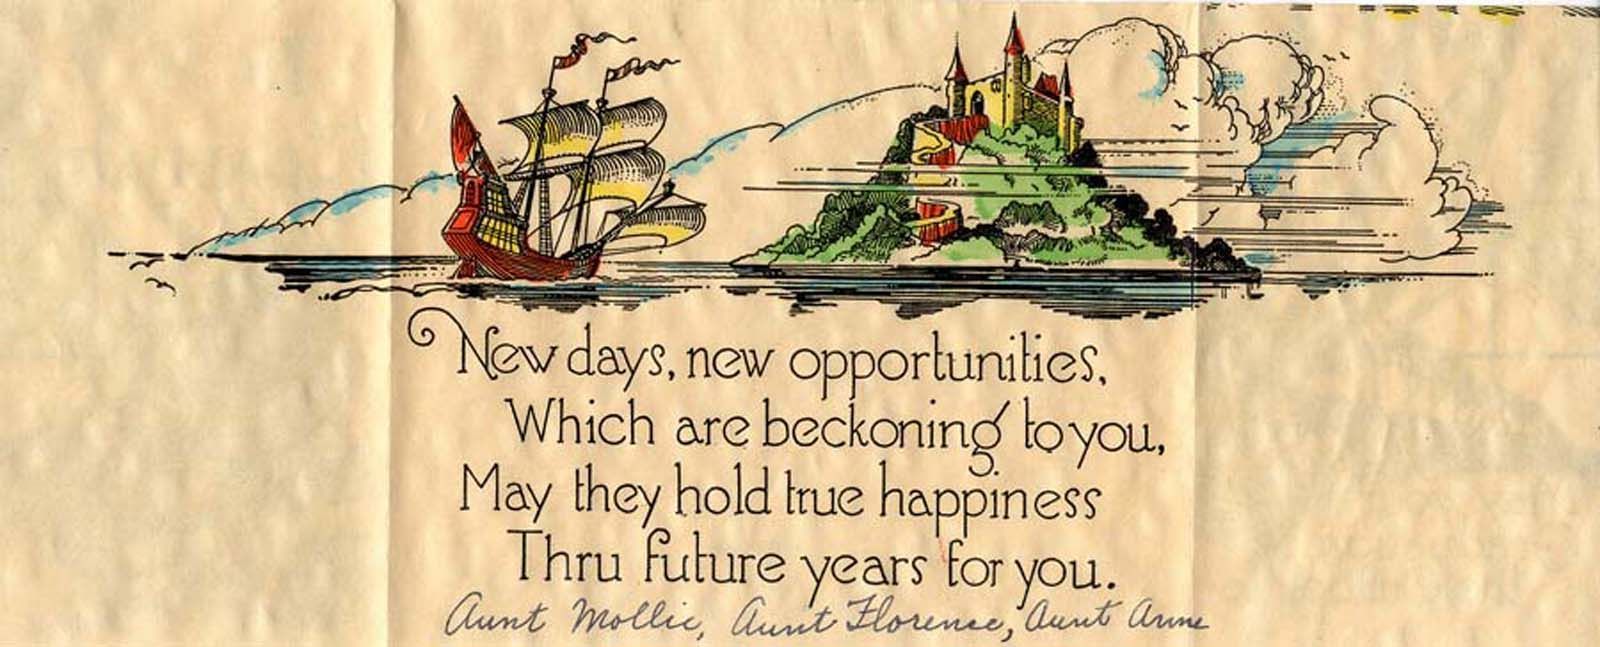 New days, new opportunities,
Which are beckoning to you,
May they hold true happiness
Thru future years for you.
Aunt Mollie, Aunt Florence, Aunt Anne